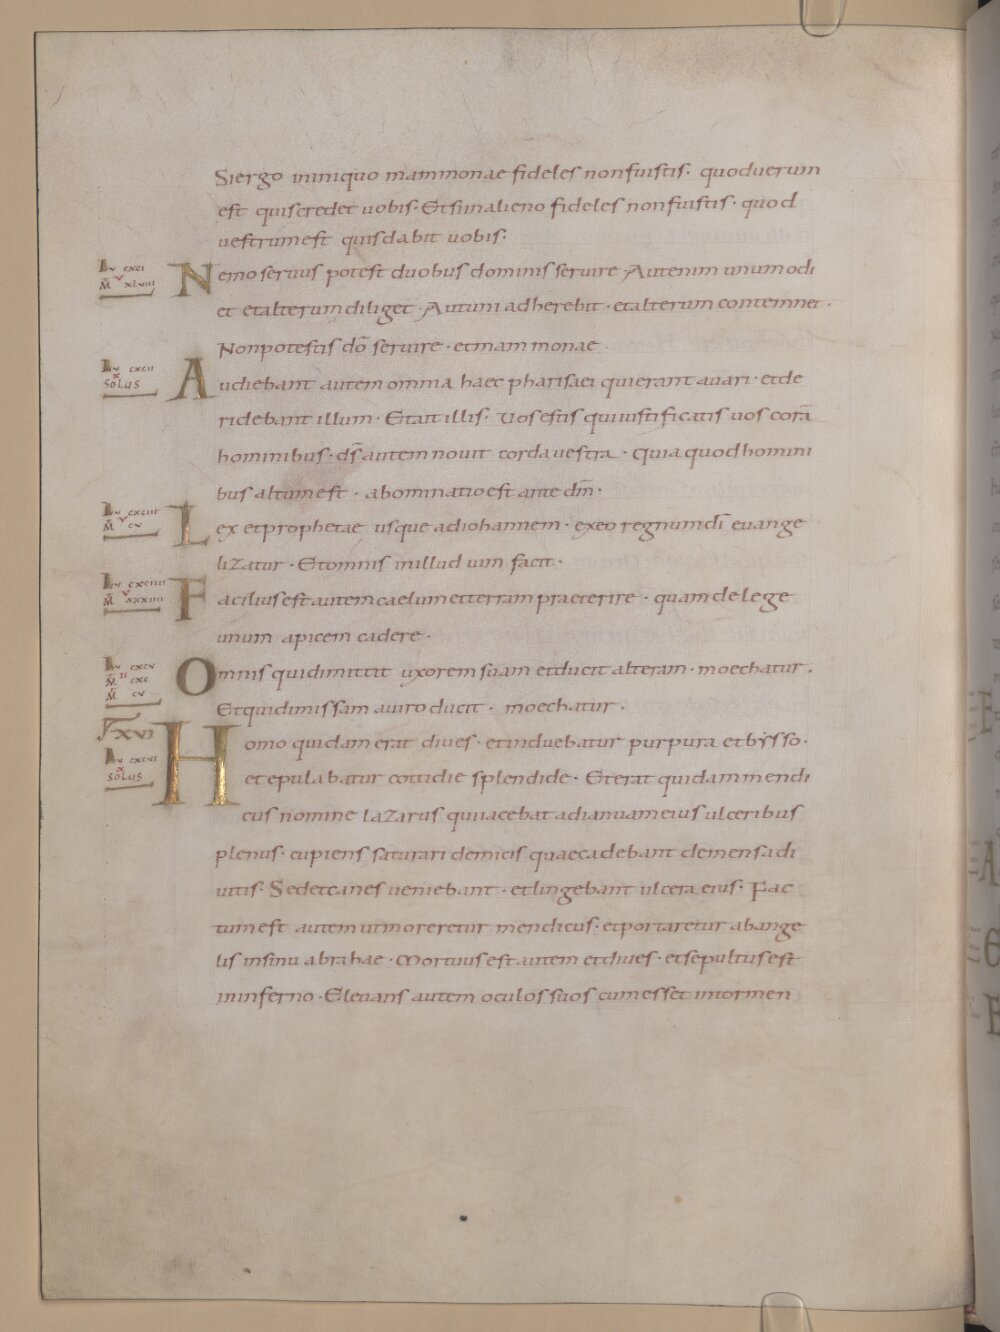 Siergo ininiquo mammonae fideles nonfuistis· quoduerum
est quiscredet uobis· Etsiinalieno fideles nonfuistis· quod
uestrumest quisdabit uobis·
Lū cxci
M̄ xlviii
Nemo seruus potest duobus dominis seruire Autenim unum odi
et etalterum diliget· Autuni adherebit· etalterum contemnet·
Nonpotestis dō seruire· etmammonae
Lū cxcii
SOLUS
Audiebant autem omnia haec pharisaei quierant auari· etde
ridebant illum· Etait illis· Uos estis quiiustificatis uos corā
hominibus· ds̄ autem nouit corda uestra· Quia quod homini
bus altum est· abominatio est ante dm̄·
Lū cxciii
M̄ cv
Lex etprophetae usque adiohannem· exeo regnum dī euange
lizatur· Etomnis inillud uim facit·
Lū cxciiii
M̄ xxxiiii
Facilius est autem caelum etterram praeterire· quam de lege
unum apicem cadere·
Lū cxcv
M̄ cxc
M̄ cv
Omnis quidimittit uxorem suam etducit alteram· moechatur·
Etquidimissam auiro ducit· moechatur·
XVI
Lū cxcvi
SOLUS
Homo quidam erat diues· etinduebatur purpura etbysso·
etepulabatur cottidie splendide· Eterat quidam mendi
cus nomine lazarus quiiacebat adianuam eius ulceribus
plenus· cupiens saturari demicis quaecadebant demensa di
uitis· Sedetcanes ueniebant· etlingebant ulcera eius· Fac
tum est autem utmoreretur mendicus· etportaretur abange
lis insinu abrahae· Mortuus est autem etdiues· etsepultus est
ininferno· Eleuans autem oculos suos cum esset intormen